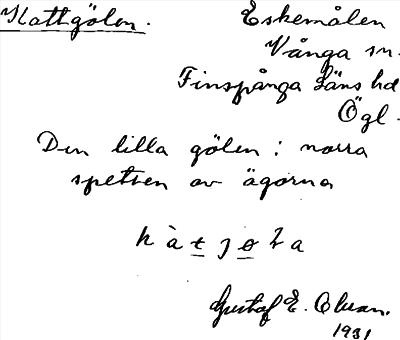 Kattgölen. Eskemålen
Vånga sn.
Finspånga Läns hd
Ögl.
Den lilla gölen i norra
spetsen av ägorna
Gustaf E. Olsson.
1931